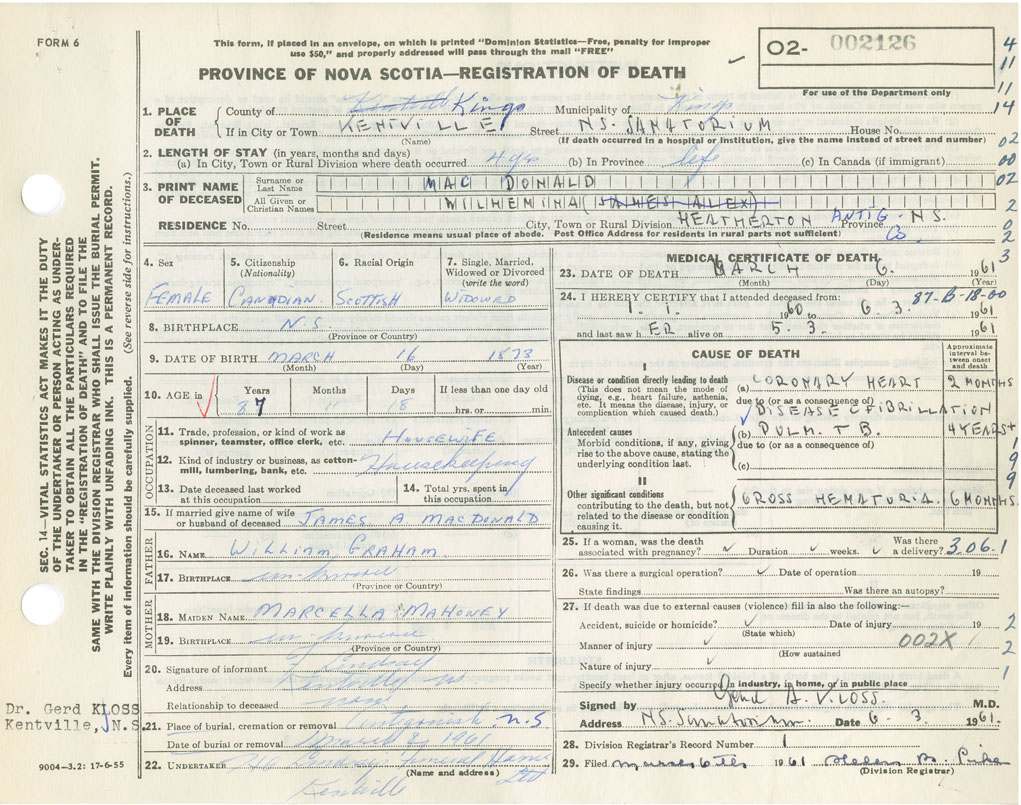 FORM 6
This form, if placed in an envelope, on which is printed "Dominion Statistics—Free, penalty for improper
use $50," and properly addressed will pass through the mail "FREE"
PROVINCE OF NOVA SCOTIA—REGISTRATION OF DEATH
O2- 002126
For use of the Department only
4
11
11
14
02
00
02
2
0
2
3
1. PLACE OF DEATH
County of Kentville Kings Municipality of Kings
If in City or Town KENTVILLE Street N.S. SANATORIUM House No.
(Name) (If death occurred in a hospital or institution, give the name instead of street and number)
2. LENGTH OF STAY (in years, months and days)
(a) In City, Town or Rural Division where death occurred (b) In Province life (c) In Canada (if immigrant)
3. PRINT NAME OF DECEASED
Surname or Last Name MAC DONALD
All Given or Christian Names WILHEMINA (JAMES ALEX)
RESIDENCE No. Street City, Town or Rural Division HEATHERTON ANTIG. Co Province N.S.
(Residence means usual place of abode. Post Office Address for residents in rural parts not sufficient)
SEC. 14—VITAL STATISTICS ACT MAKES IT THE DUTY
OF THE UNDERTAKER OR PERSON ACTING AS UNDER-
TAKER TO OBTAIN ALL THE PARTICULARS REQUIRED
IN THE "REGISTRATION OF DEATH" AND TO FILE THE
SAME WITH THE DIVISION REGISTRAR WHO SHALL ISSUE THE BURIAL PERMIT.
WRITE PLAINLY WITH UNFADING INK. THIS IS A PERMANENT RECORD.
Every item of information should be carefully supplied. (See reverse side for instructions.)
4. Sex
FEMALE
5. Citizenship
(Nationality)
CANADIAN
6. Racial Origin
SCOTTISH
7. Single, Married,
Widowed or Divorced
(write the word)
WIDOWED
8. BIRTHPLACE N.S.
(Province or Country)
9. DATE OF BIRTH MARCH 16 1873
(Month) (Day) (Year)
10. AGE in Years Months Days If less than one day old
87 18 hrs. or min.
OCCUPATION
11. Trade, profession, or kind of work as
spinner, teamster, office clerk, etc. HOUSEWIFE
12. Kind of industry or business, as cotton-
mill, lumbering, bank, etc. Housekeeping
13. Date deceased last worked
at this occupation
14. Total yrs. spent in
this occupation
15. If married give name of wife
or husband of deceased JAMES A MACDONALD
FATHER
16. NAME WILLIAM GRAHAM
17. BIRTHPLACE unknown
(Province or Country)
MOTHER
18. MAIDEN NAME MARCELLA MAHONEY
19. BIRTHPLACE unknown
(Province or Country)
20. Signature of informant Lindsay
Address Kentville
Relationship to deceased none
Dr. Gerd KLOSS
Kentville, N.S.
21. Place of burial, cremation or removal Antigonish N.S
Date of burial or removal March 8, 1961
22. UNDERTAKER Lindsay Funeral Home Ltd
(Name and address)
Kentville
9004-3.2: 17-6-55
MEDICAL CERTIFICATE OF DEATH
23. DATE OF DEATH MARCH 6. 1961
(Month) (Day) (Year)
24. I HEREBY CERTIFY that I attended deceased from: 87-B-18-00
1. 1. 1960 to 6. 3. 1961
and last saw h ER alive on 5. 3. 1961
CAUSE OF DEATH
Approximate
interval be-
tween onset
and death
I
Disease or condition directly leading to death
(This does not mean the mode of
dying, e.g., heart failure, asthenia,
etc. It means the disease, injury, or
complication which caused death.)
(a) CORONARY HEART 2 MONTHS
due to (or as a consequence of)
DISEASE C FIBRILLATION
Antecedent causes
Morbid conditions, if any, giving
rise to the above cause, stating the
underlying condition last.
(b) PULM. T.B. 4 YEARS +
due to (or as a consequence of)
(c)
1
9
9
II
Other significant conditions
contributing to the death, but not
related to the disease or condition
causing it.
GROSS HEMATURIA. 6 MONTHS.
25. If a woman, was the death
associated with pregnancy? Duration weeks. Was there
a delivery? 3.06.1
26. Was there a surgical operation? Date of operation 19
State findings Was there an autopsy?
27. If death was due to external causes (violence) fill in also the following:—
Accident, suicide or homicide? Date of injury 19
(State which)
Manner of injury 002X
(How sustained)
Nature of injury
2
2
1
Specify whether injury occurred in industry, in home, or in public place
Signed by Gerd A. KLOSS. M.D.
Address N.S. Sanatorium. Date 6-3. 1961.
28. Division Registrar's Record Number 1
29. Filed 1961
(Division Registrar)